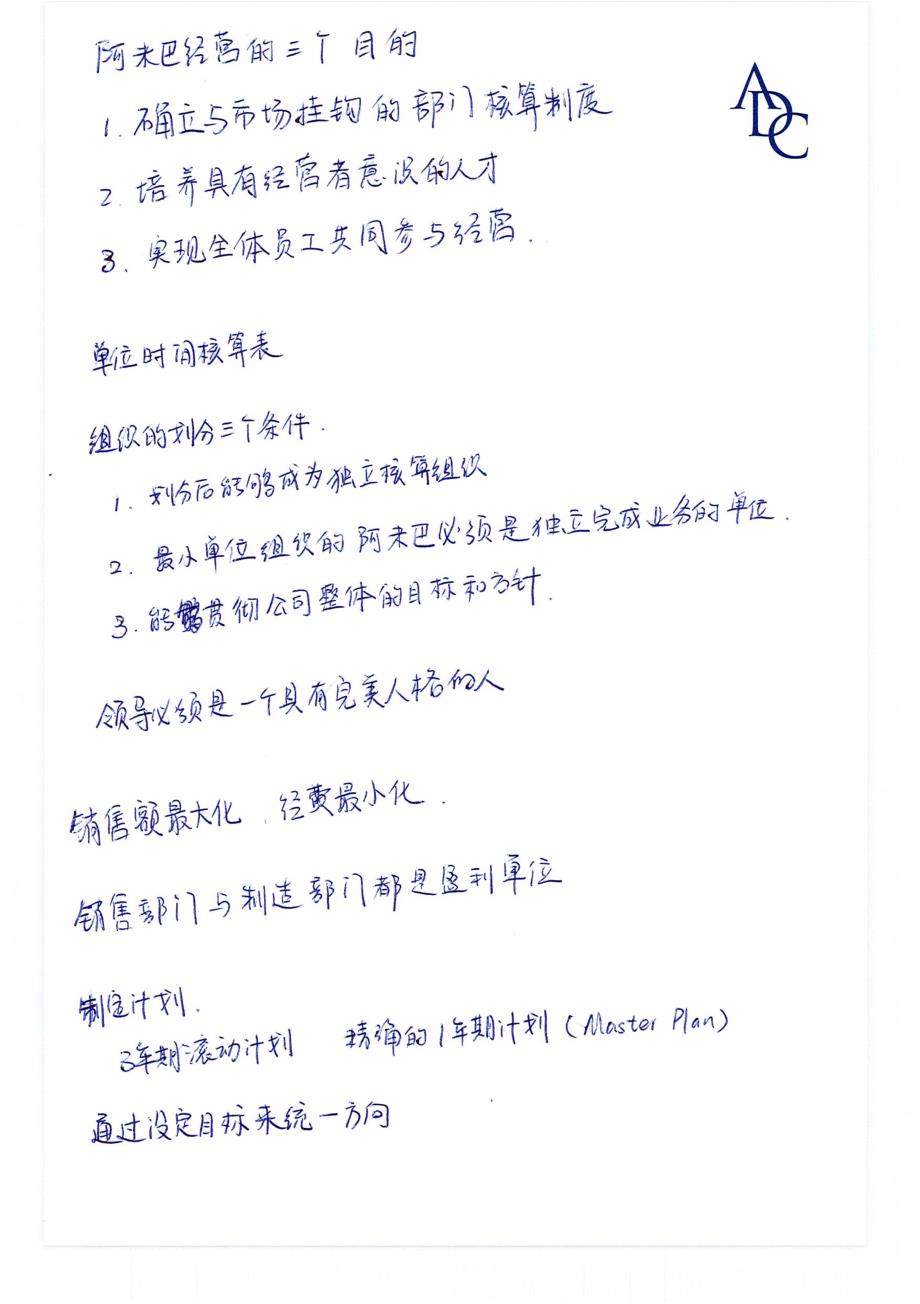 阿米巴经营的三个目的
ADC
1. 确立与市场挂钩的部门核算制度
2. 培养具有经营者意识的人才
3. 实现全体员工共同参与经营.
单位时间核算表
组织的划分三个条件.
1. 划分后能够成为独立核算组织
2. 最小单位组织的阿米巴必须是独立完成业务的单位.
3. 能够贯彻公司整体的目标和方针.
领导必须是一个具有完美人格的人
销售额最大化、经费最小化.
销售部门与制造部门都是盈利单位
制定计划.
3年期滚动计划 精确的1年期计划(Master Plan)
通过设定目标来统一方向